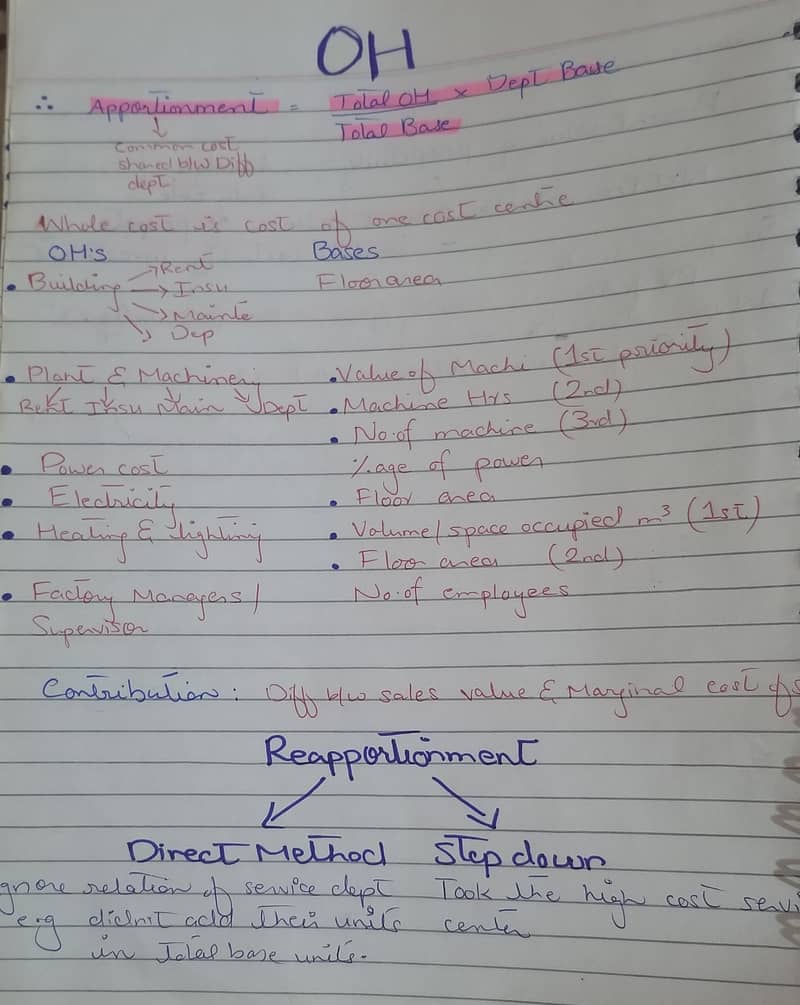 OH
∴ Apportionment = Total OH × Dept Base
Total Base
Common cost
shared b/w Diff
dept
Whole cost is cost of one cost centre
OH's Bases
• Building → Rent Floor area
→ Insu
→ Mainte
→ Dep
• Plant & Machinery • Value of Machi (1st priority)
Rent Insu Main Dept • Machine Hrs (2nd)
• No. of machine (3rd)
• Power cost %age of power
• Electricity • Floor area
• Heating & lighting • Volume/space occupied m³ (1st)
• Floor area (2nd)
• Factory Managers/ No. of employees
Supervisor
Contribution: Diff b/w sales value & Marginal cost of
Reapportionment
Direct Method Step down
gnore relation of service dept Took the high cost servi
e.g didn't add their units center
in Total base units.